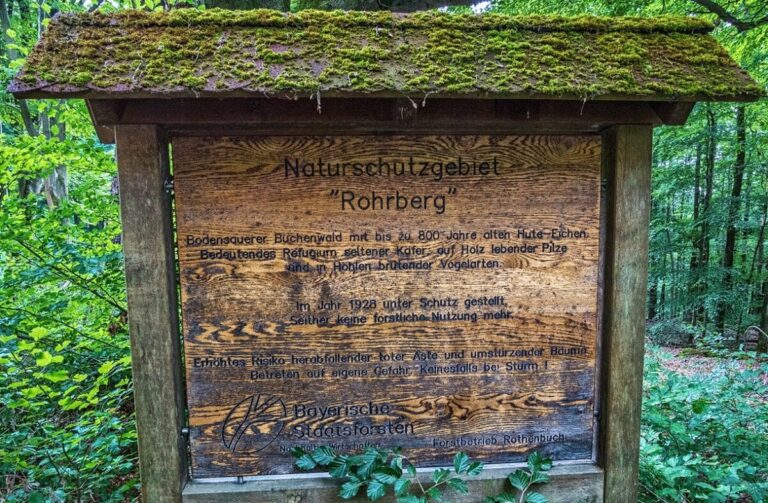 Naturschutzgebiet
"Rohrberg"
Bodensauerer Buchenwald mit bis zu 800 Jahre alten Hute-Eichen.
Bedeutendes Refugium seltener Käfer, auf Holz lebender Pilze
und in Höhlen brütender Vogelarten.
Im Jahr 1928 unter Schutz gestellt.
Seither keine forstliche Nutzung mehr.
Erhöhtes Risiko herabfallender toter Äste und umstürzender Bäume.
Betreten auf eigene Gefahr. Keinesfalls bei Sturm !
Bayerische
Staatsforsten
Wirtschaften
Forstbetrieb Rothenbuch